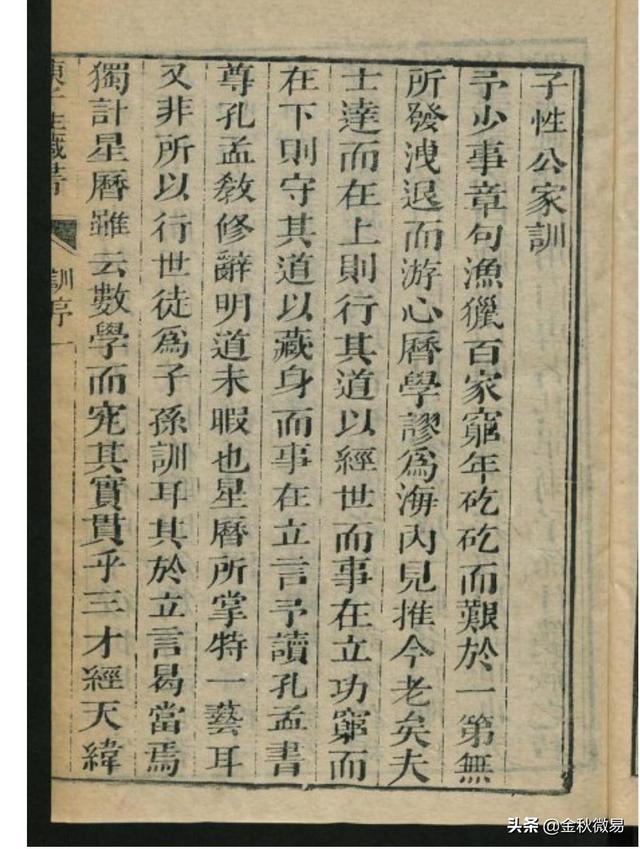 子性公家訓
予少事章句漁獵百家窮年矻矻而艱於一第無
所發洩退而游心曆學謬為海內見推今老矣夫
士達而在上則行其道以經世而事在立功窮而
在下則守其道以藏身而事在立言予讀孔孟書
尊孔孟教修辭明道未暇也星曆所掌特一藝耳
又非所以行世徒為子孫訓耳其於立言曷當焉
獨計星曆雖云數學而究其實貫乎三才經天緯
陳子性藏書
訓序一
头条 @金秋微易